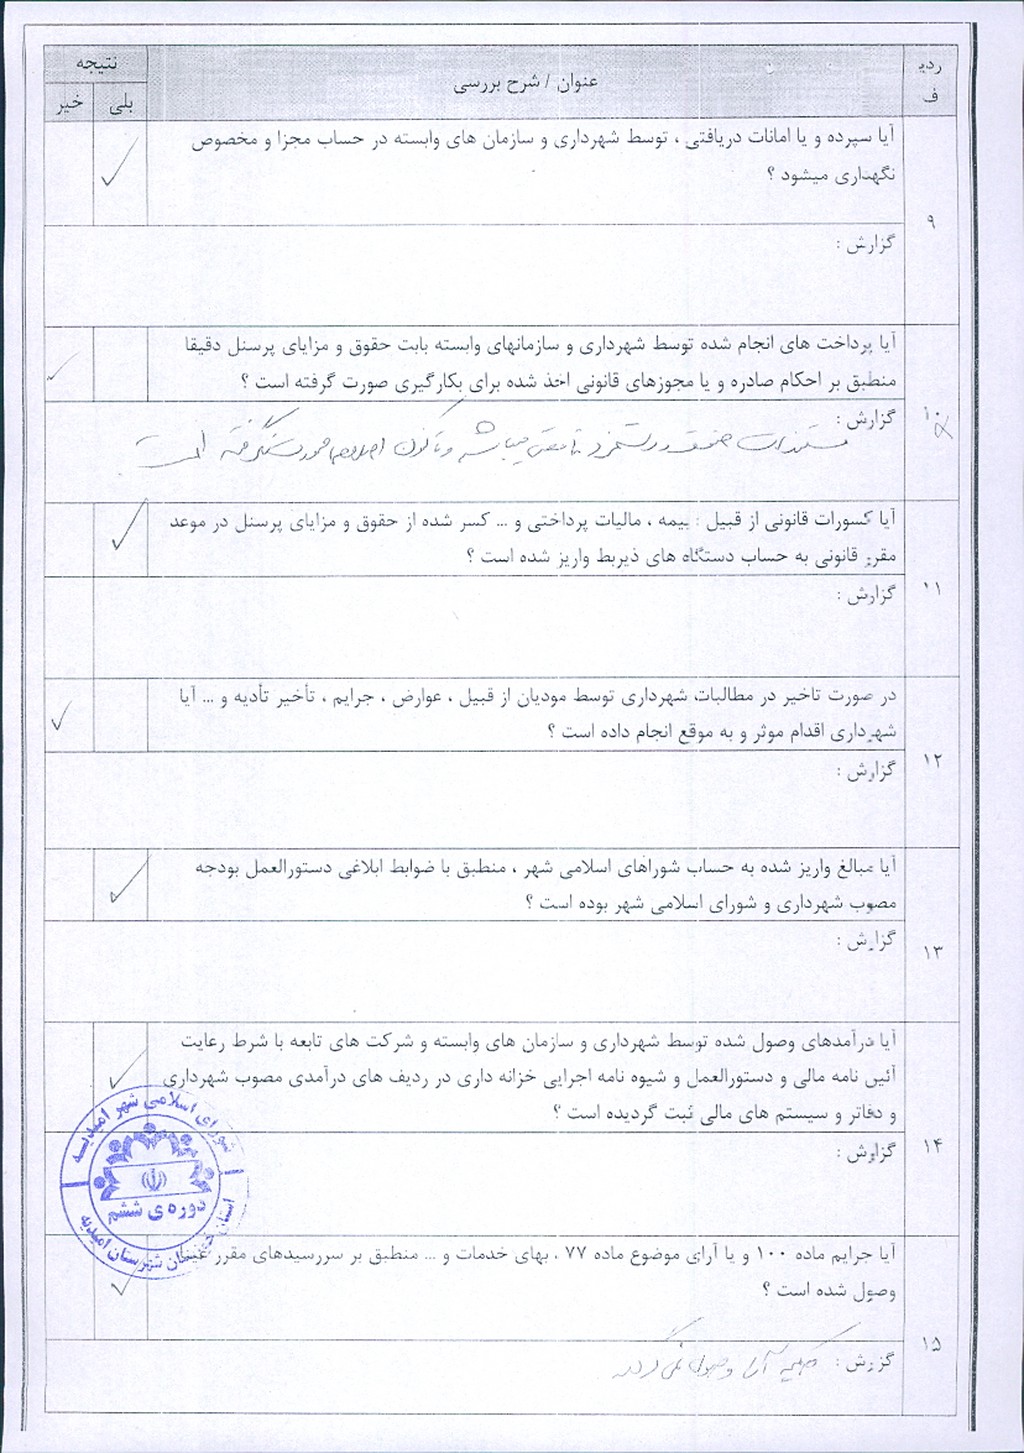 ردیف
عنوان / شرح بررسی
نتیجه
بلی
خیر
۹
آیا سپرده و یا امانات دریافتی ، توسط شهرداری و سازمان های وابسته در حساب مجزا و مخصوص
نگهداری میشود ؟
گزارش :
۱۰
آیا پرداخت های انجام شده توسط شهرداری و سازمانهای وابسته بابت حقوق و مزایای پرسنل دقیقا
منطبق بر احکام صادره و یا مجوزهای قانونی اخذ شده برای بکارگیری صورت گرفته است ؟
گزارش :
مستندات حقوق و دستمزد ناقص میباشد و تاکنون اصلاح صورت نگرفته است
۱۱
آیا کسورات قانونی از قبیل : بیمه ، مالیات پرداختی و ... کسر شده از حقوق و مزایای پرسنل در موعد
مقرر قانونی به حساب دستگاه های ذیربط واریز شده است ؟
گزارش :
۱۲
در صورت تاخیر در مطالبات شهرداری توسط مودیان از قبیل ، عوارض ، جرایم ، تأخیر تأدیه و ... آیا
شهرداری اقدام موثر و به موقع انجام داده است ؟
گزارش :
۱۳
آیا مبالغ واریز شده به حساب شوراهای اسلامی شهر ، منطبق با ضوابط ابلاغی دستورالعمل بودجه
مصوب شهرداری و شورای اسلامی شهر بوده است ؟
گزارش :
۱۴
آیا درآمدهای وصول شده توسط شهرداری و سازمان های وابسته و شرکت های تابعه با شرط رعایت
آئین نامه مالی و دستورالعمل و شیوه نامه اجرایی خزانه داری در ردیف های درآمدی مصوب شهرداری
و دفاتر و سیستم های مالی ثبت گردیده است ؟
گزارش :
شورای اسلامی شهر امیدیه
دوره ی ششم
استان خوزستان شهرستان امیدیه
۱۵
آیا جرایم ماده ۱۰۰ و یا آرای موضوع ماده ۷۷ ، بهای خدمات و ... منطبق بر سررسیدهای مقرر
وصول شده است ؟
گزارش : کلیه آرا وصول نمی گردد